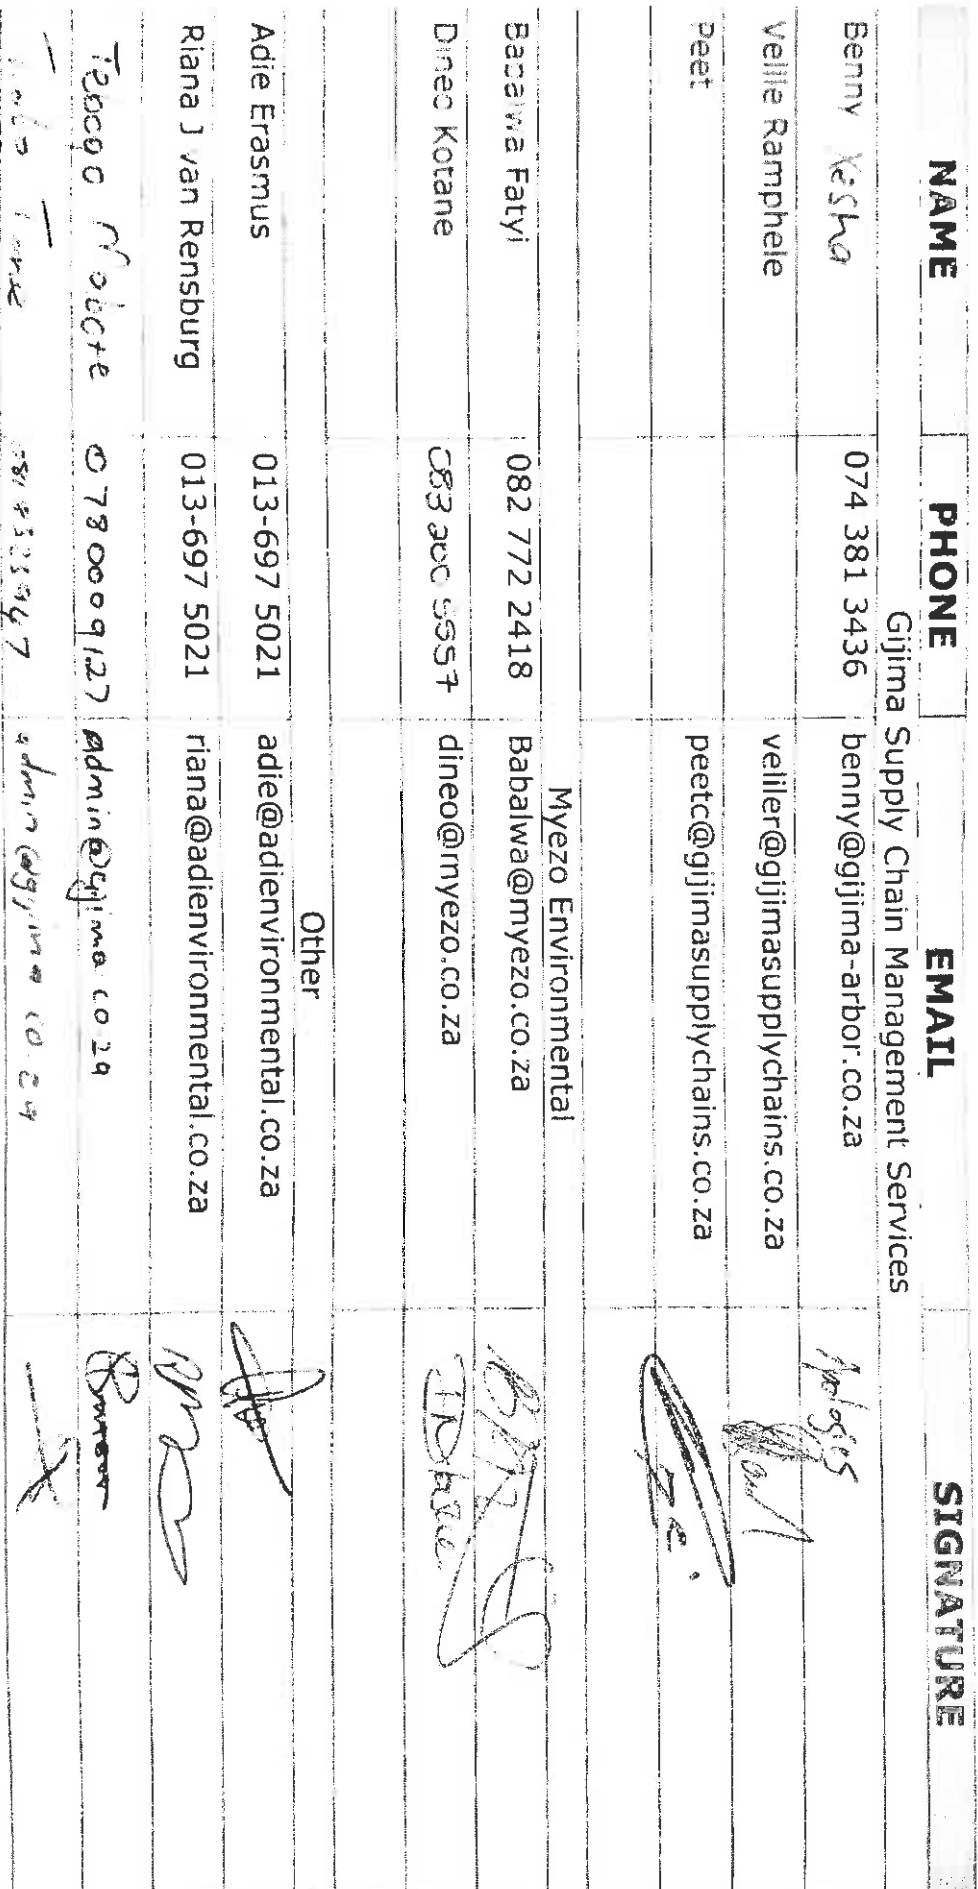 NAME PHONE EMAIL SIGNATURE
Gijima Supply Chain Management Services
Benny Xesha 074 381 3436 benny@gijima-arbor.co.za Apologies
Vellie Ramphele veliler@gijimasupplychains.co.za
Peet peetc@gijimasupplychains.co.za
Myezo Environmental
Babalwa Fatyi 082 772 2418 Babalwa@myezo.co.za
Dineo Kotane 083 200 5557 dineo@myezo.co.za
Other
Adie Erasmus 013-697 5021 adie@adienvironmental.co.za
Riana J van Rensburg 013-697 5021 riana@adienvironmental.co.za
Tebogo 0780009127 admin@gijima.co.za
admin@gijima.co.za